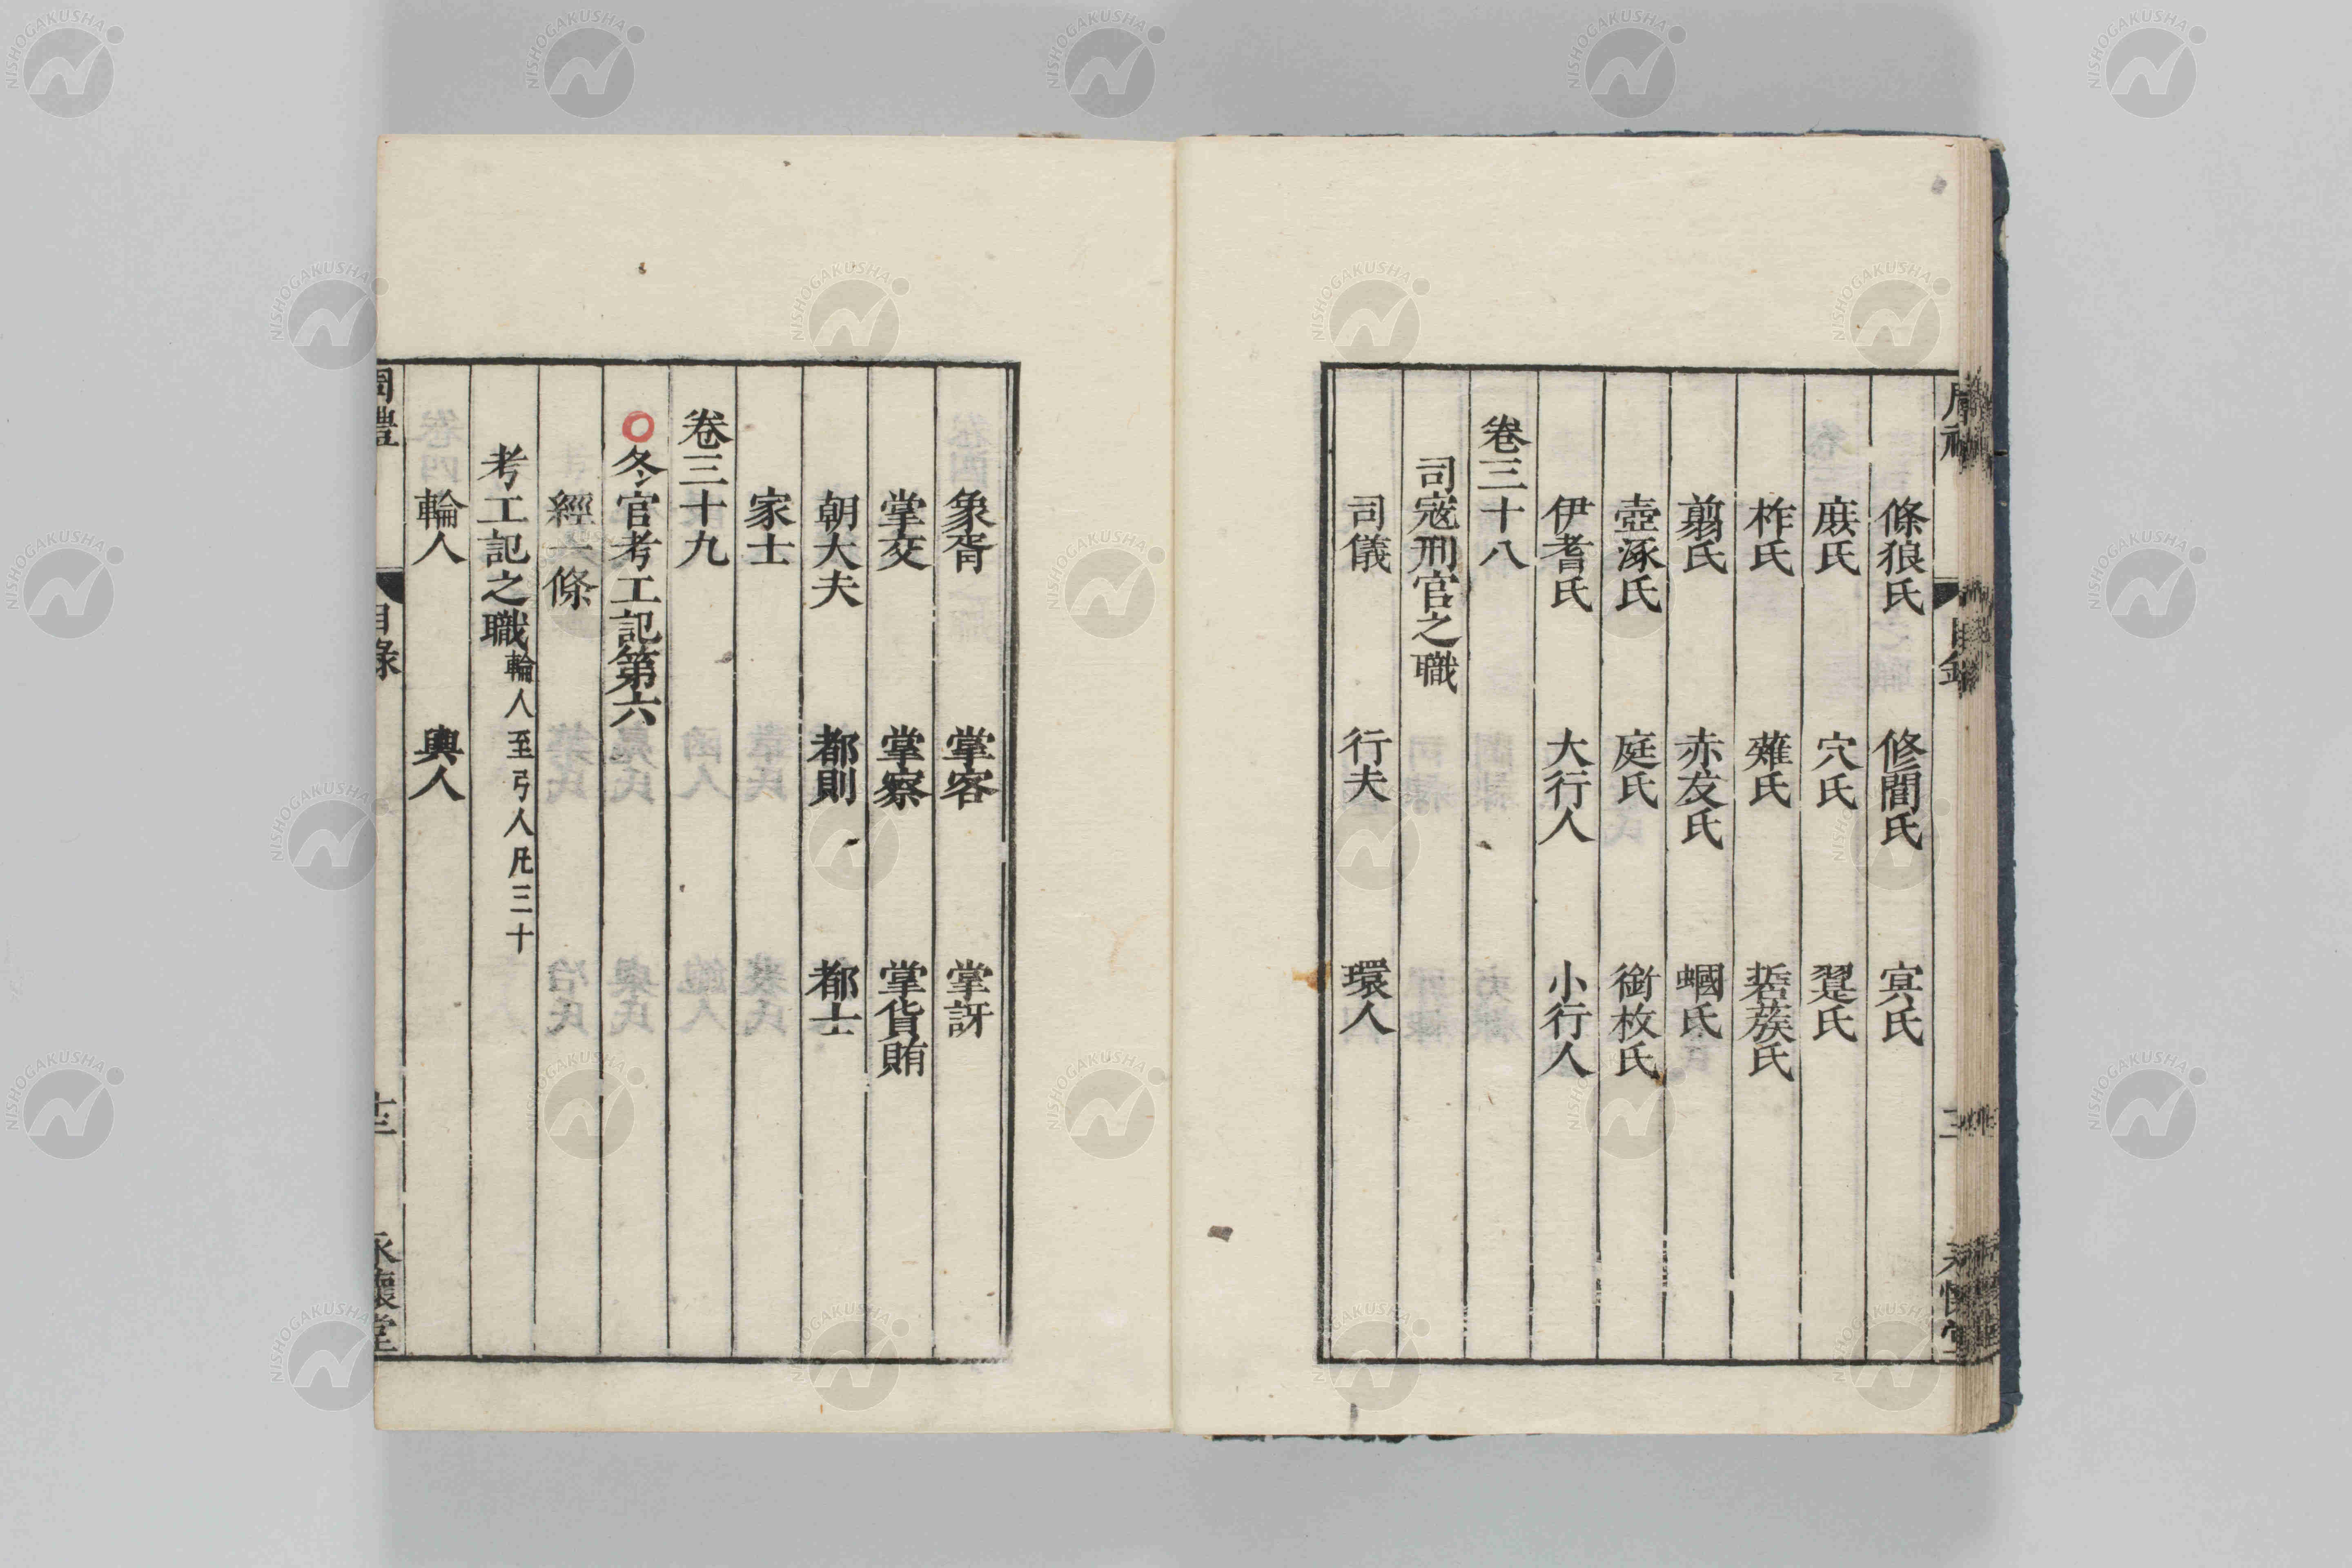 條狼氏 修閭氏 冥氏
庶氏 穴氏 翨氏
柞氏 薙氏 硩蔟氏
翦氏 赤犮氏 蟈氏
壺涿氏 庭氏 銜枚氏
伊耆氏 大行人 小行人
卷三十八
司寇刑官之職
司儀 行夫 環人
象胥 掌客 掌訝
掌交 掌察 掌貨賄
朝大夫 都則 都士
家士
卷三十九
○冬官考工記第六
經一條
考工記之職 輪人至弓人凡三十
輪人 輿人
周禮 目錄 十三 永懷堂
NISHOGAKUSHA